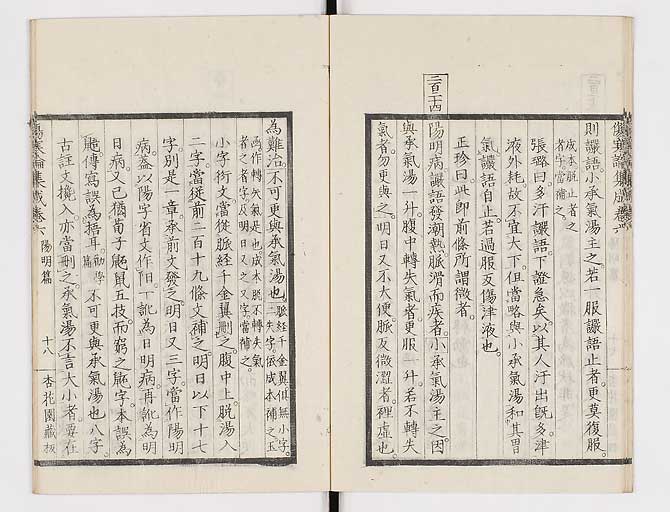 則讝語小承氣湯主之若一服讝語止者更莫復服
成本脫止者之
者字當補之
張璐曰多汗讝語下證急矣以其人汗出旣多津
液外耗故不宜大下但當略與小承氣湯和其胃
氣讝語自止若過服反傷津液也
正珍曰此即前條所謂微者
二百一十四
陽明病讝語發潮熱脈滑而疾者小承氣湯主之因
與承氣湯一升腹中轉失氣者更服一升若不轉失
氣者勿更與之明日又不大便脈反微澀者裡虛也
傷寒論集成卷六
為難治不可更與承氣湯也
脈經千金翼俱無小字
失字依成本補之玉
函作轉矢氣是也成本脫不轉失氣
者之者字及明日又之又字當補之
小字衍文當從脈經千金翼刪之腹中上脫湯入
二字當從前二百十九條文補之明日以下十七
字別是一章承前文發之明日又三字當作陽明
病蓋以陽字省文作阳一訛為日明病再訛為明
日病又已猶荀子鼫鼠五技而窮之鼫字本誤為
鼫傳寫誤為梧耳勸學篇不可更與承氣湯也八字
古註文攙入亦當刪之承氣湯不言大小者要在
傷寒論集成卷六 陽明篇 十八 杏花園藏板